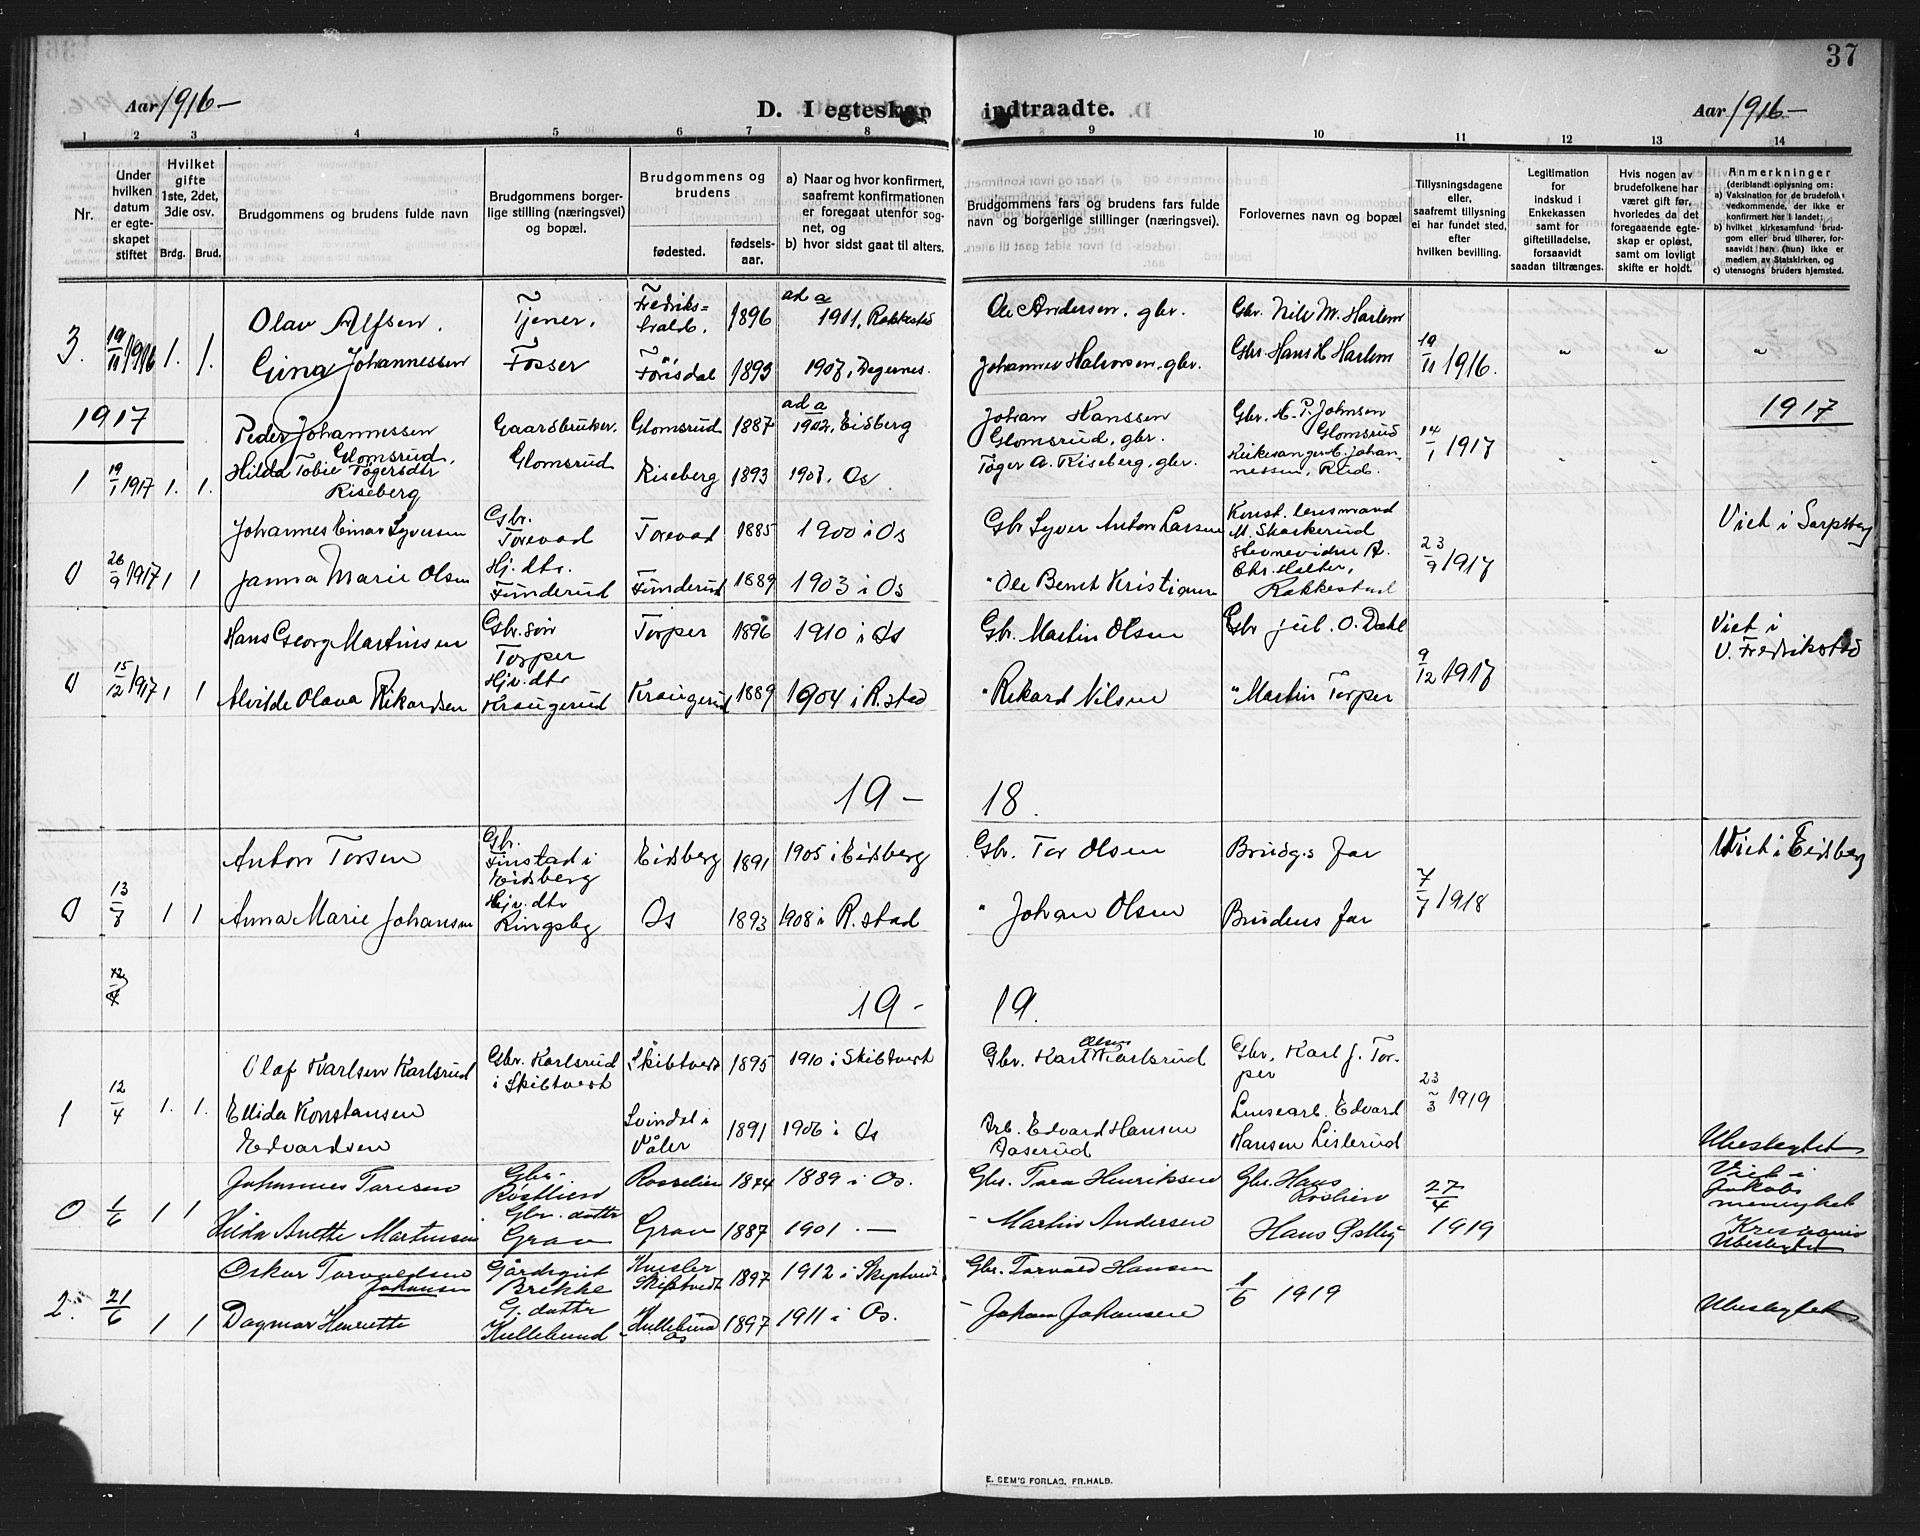 37
Aar 1916 –
D. I egteskap
indtraadte.
Aar 1916 –
1 2 3 4 5 6 7 8 9 10 11 12 13 14
Nr.
Under hvilken datum er egte-skapet stiftet
Hvilket gifte 1ste, 2det, 3die osv.
Brdg. Brud.
Brudgommens og brudens fulde navn
Brudgommens borger-lige stilling (næringsvei) og bopæl.
Brudgommens og brudens
fødested.
fødsels-aar.
a) Naar og hvor konfirmert, saafremt konfirmationen er foregaat utenfor sog-net, og
b) hvor sidst gaat til alters.
Brudgommens fars og brudens fars fulde navn og borgerlige stillinger (næringsvei).
Forlovernes navn og bopæl
Tillysningsdagene eller, saafremt tillysning ei har fundet sted, efter hvilken bevilling.
Legitimation for indskud i Enkekassen samt for giftetilladelse, forsaavidt saadan tiltrænges.
Hvis nogen av brudefolkene har været gift før, hvorledes da det foregaaende egte-skap er opløst, samt om lovligt skifte er holdt.
Anmerkninger
(deriblandt oplysning om:
a) Vaksination for de brudefolks vedkommende, der ikke er konfirmert her i landet;
b) hvilket kirkesamfund brud-gom eller brud tilhører, for-saavidt han (hun) ikke er medlem av Statskirken, og
c) utensogns bruders hjemsted.
Olav Alfsen. Tjener. Fredriks-hald. 1896 ad a 1911, Rakkestad Ole Andersen, gbr. Gbr. Nils M. Harlem
3. 19/11 1916 1. 1. Gina Johannessen Fosser Førisdal 1893 1907, Degernes. Johannes Halvorsen, gbr. Gbr. Hans H Harlem 19/11 1916. " " "
1917
1917
Peder Johannessen Glomsrud, Gaardbruker. Glomsrud 1887 ad a 1902, Eidberg Johan Hanssen Glomsrud, gbr. Gbr. H. P. Johnsen Glomsrud
1 19/1 1917 1. 1. Hilda Tobie Tøgersdtr Riseberg Glomsrud Riseberg 1893 1907, Os Tøger A. Riseberg, gbr. Kirkesanger C. Johan-nessen, Rud. 14/1 1917
Johannes Einar Syversen Gbr. Torevad Torevad 1885 1900 i Os Gbr Syver Anton Larsen Konst. lensmand M. Skarkerud Viet i Sarpsborg
0 26/9 1917 1 1 Janna Marie Olsen Hj. dtr. Finderud Finderud 1889 1903 i Os " Ole Bernt Kristiansen Stevnevidne A. Chr. Halter, Rakkestad 23/9 1917
Hans Georg Martinsen Gbr. søn Torper Torper 1896 1910 i Os Gbr. Martin Olsen Gbr Jul. O. Dæhl Viet i V. Fredrikstad
0 15/12 1917 1 1 Alvilde Olava Rikardsen Hjv. dtr Kraugerud Kraugerud 1889 1904 i R.stad " Rikard Nilsen " Martin Torper 9/12 1917
19 – 18.
Anton Torsen Gbr. Finstad i Eidsberg Eidsberg 1891 1905 i Eidsberg Gbr. Tor Olsen Brudg.s far Viet i Eidsberg
0 13/7 1 1 Anna Marie Johansen Hjv. dtr Ringsby Os 1893 1908 i R.stad " Johan Olsen Brudens far 7/7 1918
12/4
19 – 19.
Olaf Karlsen Karlsrud Gbr. Karlsrud i Skibtvedt Skibtvedt 1895 1910 i Skibtvedt Gbr. Karl Olsen Karlsrud Gbr. Karl J. Tor-per
1 12/4 1. 1. Ellida Konstansen Edvardsen Svindal i Våler 1891 1906 i Os Arb. Edvard Hansen Aaserud Linsearb. Edvard Hansen Lislerud 23/3 1919 Ubeslegtet
Johannes Toresen Gbr. Røstlien Rosselien 1874 1889 i Os. Gbr. Tore Henriksen Gbr. Hans Røslien 27/4 Viet i Jakobs menighet Kristiania
0 1/6 1 1 Hilda Anette Martinsen Gbr. datter Grav Grav 1887 1901 – – Martin Andersen Hans Østby 1919 Ubeslegtet
Oskar Torvaldsen Gårdsgut Brekke Husler Skibtvedt 1897 1912 i Skiptvedt Gbr. Torvald Hansen
2. 21/6 1 1 Dagmar Henriette Johansen G. datter Kullebund Kullebund Os 1897 1911 i Os. – Johan Johansen 1/6 1919 Ubeslegtet
E. SEM'S FORLAG, FR.HALD.